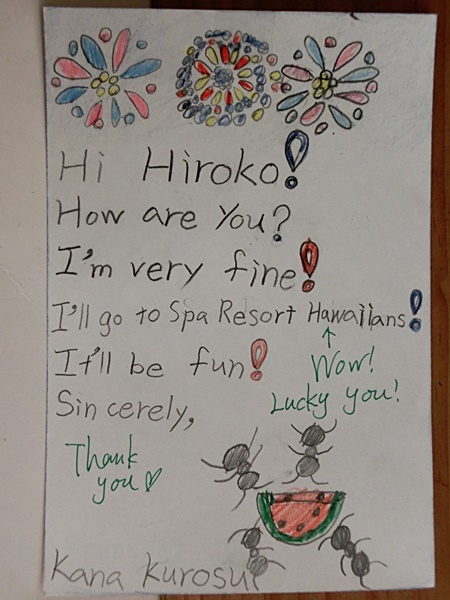 Hi Hiroko!
How are You?
I'm very fine!
I'll go to Spa Resort Hawaiians!
It'll be fun!
Wow!
Lucky you!
Sincerely,
Thank
you♡
Kana Kurosu